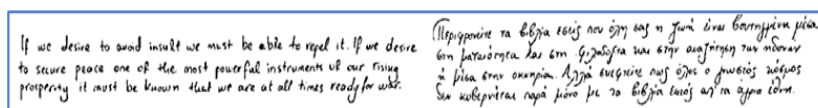 If we desire to avoid insult we must be able to repel it. If we desire
to secure peace one of the most powerful instruments of our rising
prosperity it must be known that we are at all times ready for war.
Περιφρονείτε τα βιβλία εσείς που όλη σας η ζωή είναι βουτηγμένη μέσα
στη ματαιότητα και στη φιλοδοξία και στην αναζήτηση των ηδονών
ή μέσα στην οκνηρία. Αλλά σκεφτείτε πως όλος ο γνωστός κόσμος
δεν κυβερνιέται παρά μόνο με τα βιβλία εκτός απ τα άγρια έθνη.